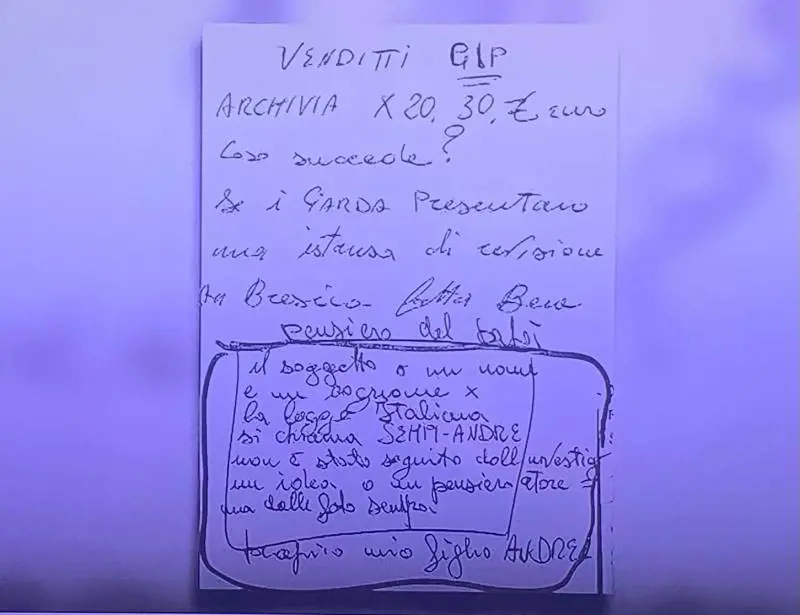 VENDITTI GIP
ARCHIVIA X 20. 30. € euro
Cosa succede?
Se i GARDA Presentano
una istanza di revisione
Brescia fatta Bene
pensiero del
il soggetto o un nome
e un cognome x
la legge Italiana
si chiama SEMPI-ANDRE
non è stato seguito dall investig
un idea o un pensier atore =
ma dalle foto sempre.
mio figlio ANDREA